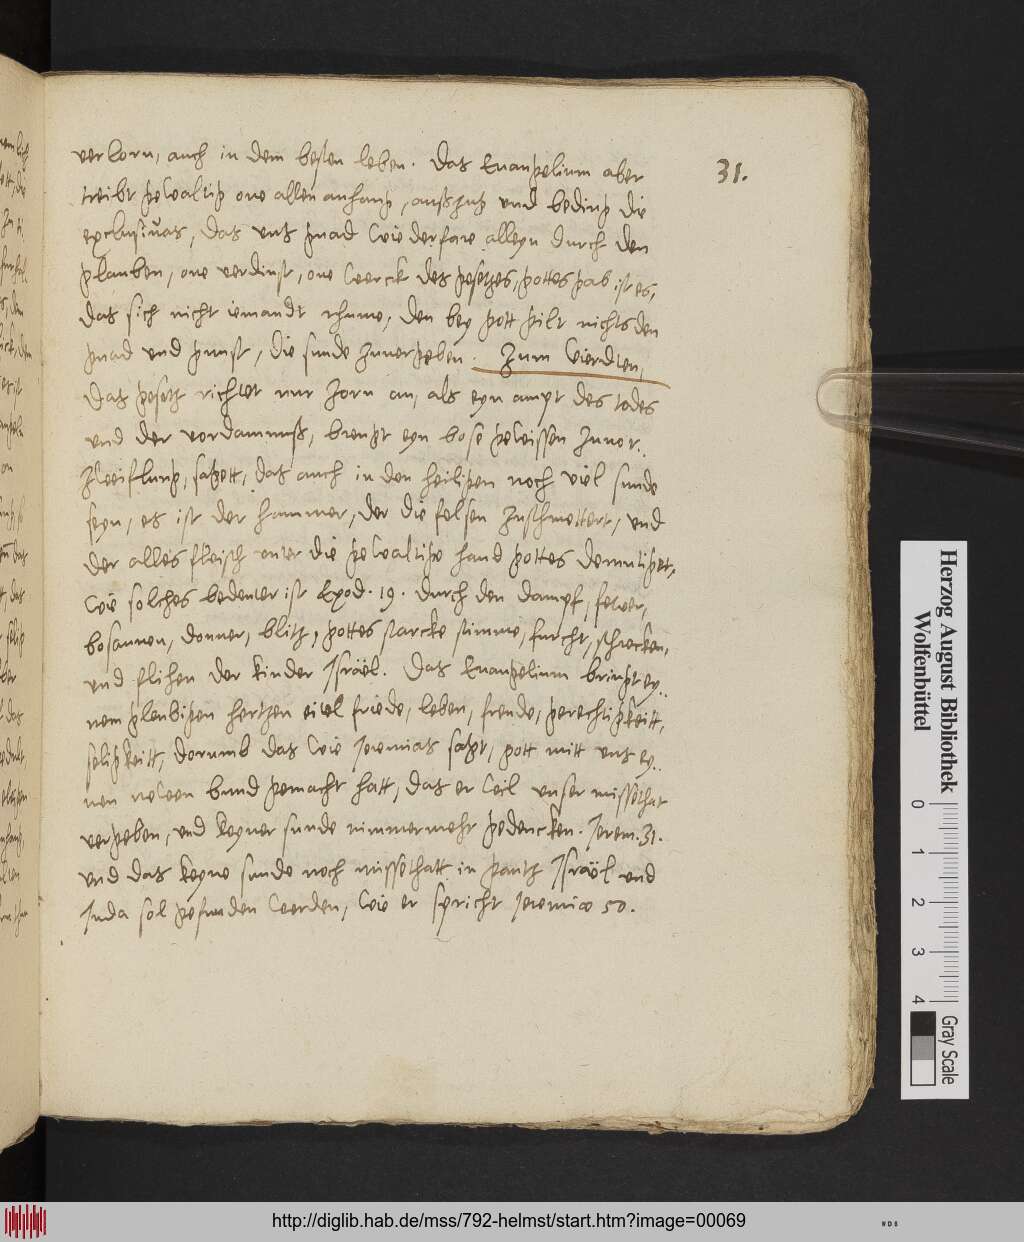 31.
verlorn, auch in dem besten leben. Das Euangelium aber
treibt gewaltig one allen anhang, außzug und beding die
exclusiuas, das uns gnad widerfare alleyn durch den
glauben, one verdinst, one werck des gesetzes, gottes gab ist es,
das sich nicht iemandt rhume, den bey gott gilt nichts den
gnad und gunst, die sunde zuuergeben. Zum vierdten,
Das gesetz richtet nur zorn an, als eyn ampt des todes
und der vordamnuß, brengt eyn bose gewissen zuuor..
zweiflung, sagett, das auch in den heiligen noch viel sunde
seyn, es ist der hammer, der die felsen zuschmettert, und
der alles fleisch unter die gewaltige hand gottes demutiget,
wie solches bedeutet ist Exod. 19. durch den dampf, fewer,
bosaunen, donner, blitz, gottes starcke stimme, furcht, schrecken,
und flihen der kinder Israël. Das Euangelium bringt ey..
nem gleubigen hertzen eitel friede, leben, freude, gerechtigkeitt,
seligkeitt, dorumb das wie Jeremias sagt, gott mitt uns ey..
nen newen bund gemacht hatt, das er wil unser missethat
vergeben, und keyner sunde nimmermehr gedencken. Jerem. 31.
und das keyne sunde noch missethatt in gantz Israël und
Juda sol gefunden werden, wie er spricht Jeremiæ 50.
Herzog August Bibliothek
Wolfenbüttel
0 1 2 3 4
Gray Scale
http://diglib.hab.de/mss/792-helmst/start.htm?image=00069